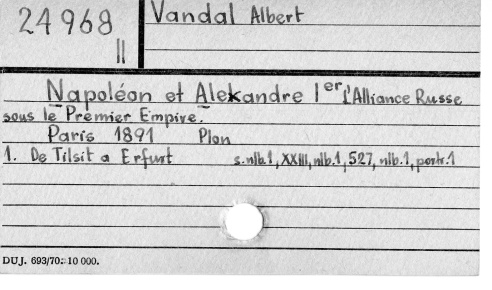 24968
II
Vandal Albert
Napoléon et Alekandre Ier L'Alliance Russe
sous le Premier Empire.
Paris 1891 Plon
1. De Tilsit a Erfurt s.nlb.1, XXIII, nlb.1, 527, nlb.1, portr.1
DUJ. 693/70: 10 000.